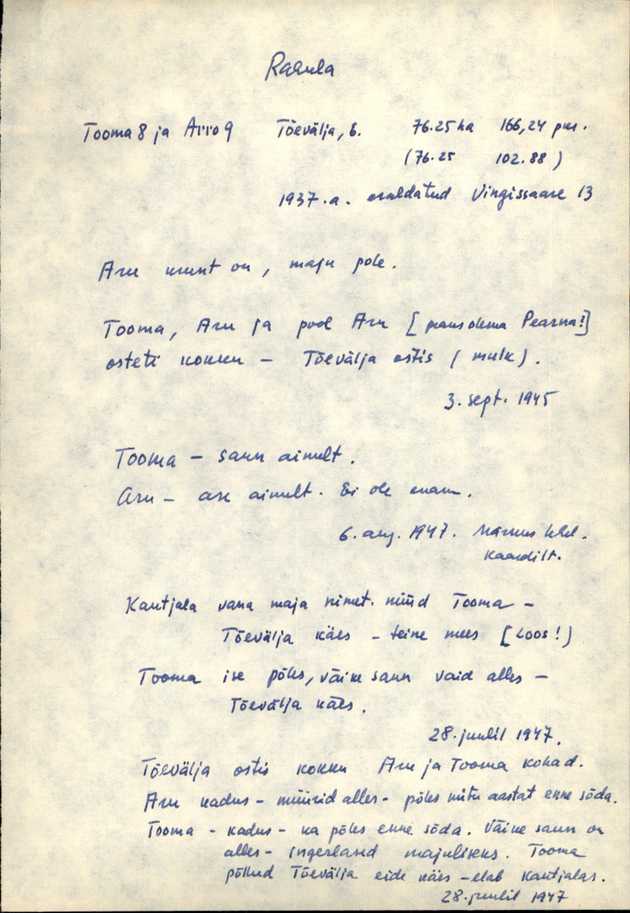 Rabula
Tooma 8 ja Arro 9 Tõevälja, E. 76.25 ha 166,24 pur.
(76.25 102.88)
1937.a. eraldatud Vingissaare 13
Aru krunt on, maju pole.
Tooma, Aru ja pool Aru [peaks olema Pearna!]
osteti kokku – Tõevälja ostis (mulk).
3. sept. 1945
Tooma – saun ainult.
Aru – ase ainult. Ei ole enam.
6. aug. 1947.
kaardilt.
Kautjala vana maja nimet. nüüd Tooma –
Tõevälja käes – teine mees [Loos!)
Tooma ise põles, väike saun vaid alles –
Tõevälja käes.
28. juulil 1947.
Tõevälja ostis kokku Aru ja Tooma kohad.
Aru kadus – müürid alles – põles mitu aastat enne sõda.
Tooma – kadus – ka põles enne sõda. Väike saun on
alles – ingerlased majuliseks. Tooma
põllud Tõevälja eide käes – elab Kautjalas.
28. juulil 1947